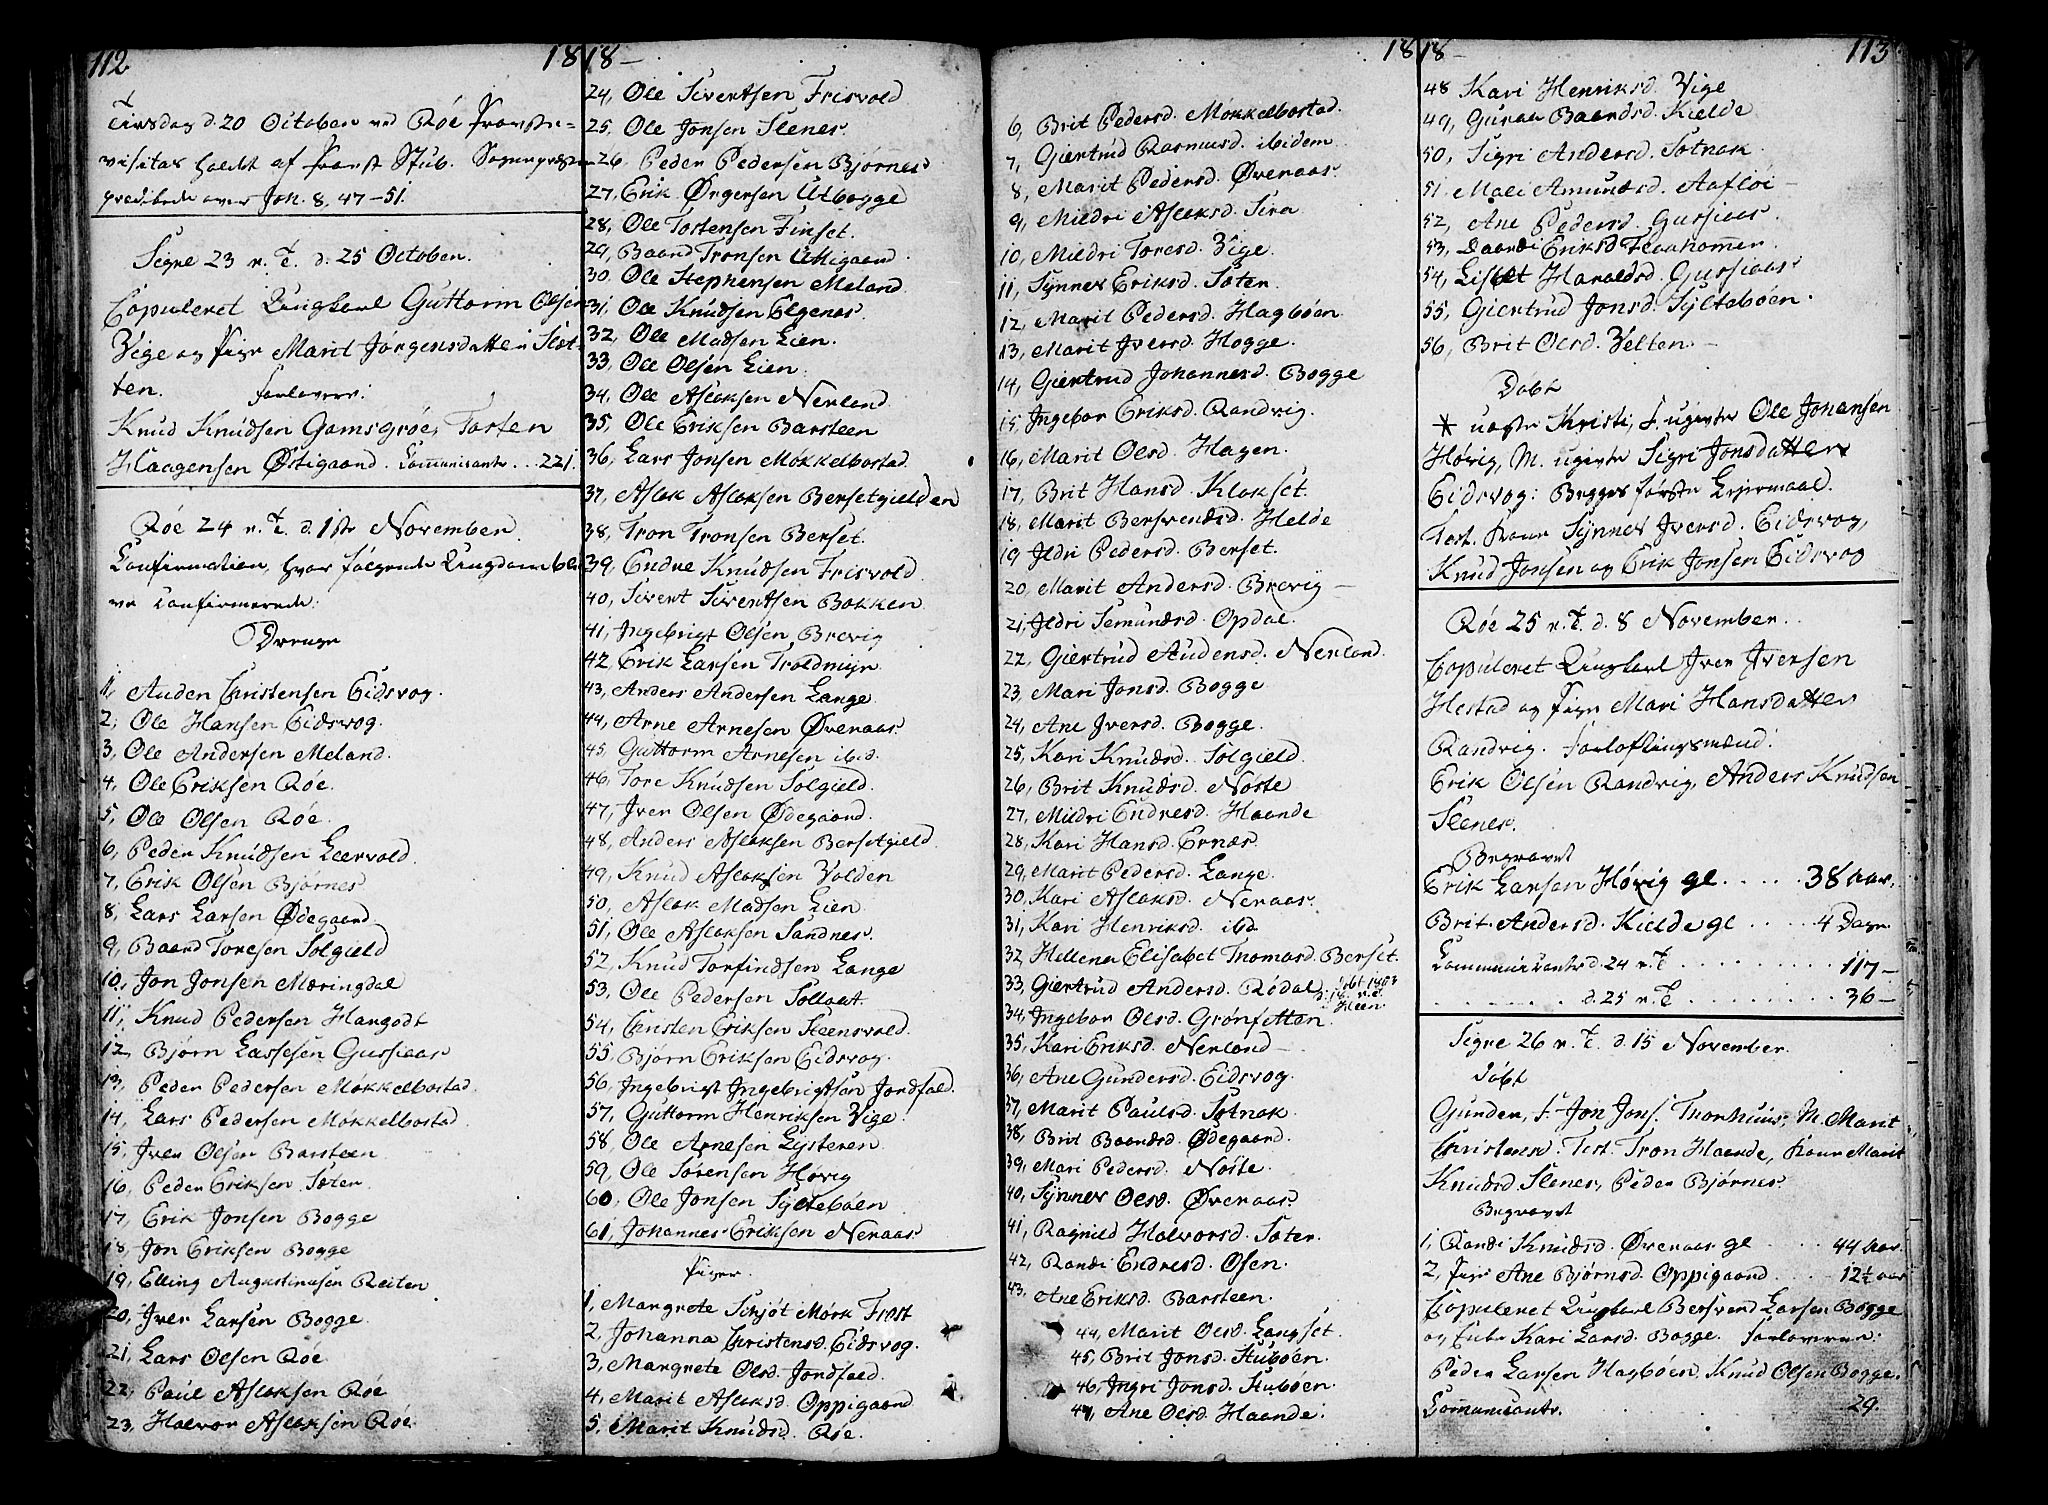 112 1818 -
Tirsdag d. 20 October ved Röe Provste-
visitas holdt af Provst Stub. Sognepræsten
prædikede over Joh. 8, 47-51.
Segre 23 n. T. d. 25 October.
Copuleret Ungkarl Guttorm Olsen
Vige og Pige Marit Jörgensdatter Slot-
ten. Forlovere:
Knud Knudsen Gamsgröe, Torsten
Haagensen Östigaard. Communicanter .. 221.
Röe 24 n. T. d. 1ste November.
Confirmation, hvor fölgende Ungdom ble-
ve confirmerede:
Drenge
1, Auden Christensen Eidsvog.
2, Ole Hansen Eidsvog.
3, Ole Andersen Meland.
4, Ole Eriksen Röe.
5, Ole Olsen Röe.
6, Peder Knudsen Leervold.
7, Erik Olsen Björnes
8, Lars Larsen Ödegaard
9, Baard Toresen Solgield
10, Jon Jonsen Mæringdal
11, Knud Pedersen Hargodt
12, Björn Lassesen Gussiaas
13, Peder Pedersen Mökkelbostad.
14, Lars Pedersen Mökkelbostad.
15, Iver Olsen Barsteen
16, Peder Eriksen Soter.
17, Erik Jonsen Bogge
18, Jon Eriksen Bogge
19, Elling Augustinusen Reiten
20, Iver Larsen Bogge.
21, Lars Olsen Röe
22, Paul Aslaksen Röe
23, Halvor Aslaksen Röe.
24, Ole Sivertsen Frisvold
25, Ole Jonsen Slenes.
26, Peder Pedersen Björnes
27, Erik Örgersen Utbogge
28, Ole Tostensen Finset.
29, Baard Tronsen Utigaard.
30, Ole Stephensen Meland
31, Ole Knudsen Elgenes.
32, Ole Madsen Lien.
33, Ole Olsen Lien.
34, Ole Aslaksen Nerland
35, Ole Eriksen Barsteen
36, Lars Jonsen Mökkelbostad.
37, Aslak Aslaksen Bersetgielden
38, Tron Tronsen Berset.
39, Endre Knudsen Frisvold
40, Sivert Sivertsen Bakken
41, Ingebrigt Olsen Brevig
42, Erik Larsen Troldmyr
43, Anders Andersen Lange
44, Arne Arnesen Överaas.
45, Guttorm Arnesen ibid.
46, Tore Knudsen Solgield.
47, Iver Olsen Ödegaard.
48, Anders Aslaksen Bersetgield.
49, Knud Aslaksen Volden
50, Aslak Madsen Lien
51, Ole Aslaksen Sandnes.
52, Knud Torfindsen Lange
53, Ole Pedersen Tolloat.
54, Christen Eriksen Steensvold.
55, Björn Eriksen Eidsvog.
56, Ingebrigt Ingebrigtsen Jordfald.
57, Guttorm Henriksen Vige.
58, Ole Arnesen Lysteren
59, Ole Sörensen Hövig
60, Ole Jonsen Syltebøen
61, Johannes Eriksen Neraas
Piger.
1, Margrete Schjöt Mörk Frost
2, Johanna Christensd. Eidsvog.
3, Margrete Olsd. Jordfald.
4, Marit Aslaksd. Oppigaard
5, Marit Knudsd. Röe.
1818 - 113
6, Brit Pedersd. Mökkelbostad.
7, Giertrud Rasmusd. ibidem
8, Marit Pedersd. Överaas
9, Mildri Aslaksd. Sira
10, Mildri Toresd. Vige.
11, Synnev Eriksd. Soter.
12, Marit Pedersd. Hagböen
13, Marit Iversd. Hogge.
14, Giertrud Johannesd. Bogge
15, Ingebor Eriksd. Randvig.
16, Marit Olsd. Hagen.
17, Brit Hansd. Klokset.
18, Marit Bersvendsd. Helde
19, Ildri Pedersd. Berset.
20, Marit Andersd. Brevig -
21, Ildri Semundsd. Opdal.
22, Giertrud Audensd. Nerland.
23, Mari Jonsd. Bogge
24, Ane Iversd. Bogge.
25, Kari Knudsd. Solgield.
26, Brit Knudsd. Nöste
27, Mildri Endresd. Haande
28, Kari Hansd. Ernæs.
29, Marit Pedersd. Lange.
30, Kari Aslaksd. Neraas
31, Kari Henriksd. ibd
32, Hellena Elisabet Thomasd. Berset.
33, Giertrud Andersd. Rödal. döbt 1803
d. 18. n. T.
Kleen.
34, Ingebor Olsd. Grönsetter.
35, Kari Eriksd. Nerland -
36, Ane Gundersd. Eidsvog.
37, Marit Paulsd. Sotnak.
38, Brit Baardsd. Ödegaard.
39, Mari Pedersd. Nöste.
40, Synnev Olsd. Överaas.
41, Ragnild Halvorsd. Soter.
42, Randi Endresd. Osen.
43, Ane Eriksd. Barsteen.
44, Marit Olsd. Langset.
45, Brit Jonsd. Stuböen.
46, Ingri Jonsd. Stuböen.
47, Ane Olsd. Haande.
48 Kari Henriksd. Vige
49, Guraa Baardsd. Kielde
50, Sigri Andersd. Sotnak.
51, Mali Amundsd. Aafloi -
52, Ane Pedersd. Gussiaas
53, Daardi Eriksd Flaahammer.
54, Lisbet Haraldsd. Gussiaas
55, Giertrud Jonsd. Syltebøen.
56, Brit Olsd. Velten. -
Döbt
* uægte Kristi, F. ugivte Ole Johansen
Hövig, M. ugivte Sigri Jonsdatter
Eidsvog: Begges förste Leiermaal.
Test. Kone Synnev Iversd. Eidsvog,
Knud Jonsen og Erik Jonsen Eidsvog
Röe 25 n. T. d. 8 November.
Copuleret Ungkarl Iver Iversen
Hestad og Pige Mari Hansdatter
Randvig. Forlovtingsmænd:
Erik Olsen Randvig, Anders Knudsen
Slenes.
Begravet
Erik Larsen Hövig gl ..... 38 Aar.
Brit Andersd. Kielde gl ..... 4 Dage.
Communicanter d. 24 n. T ......... 117 -
....... d. 25 n. T ......... 36 -
Segre 26 n. T. d. 15 November.
Döbt
Gunder, F. Jon Jons. Thorhuus, M. Marit
Christensd. Test. Tron Haande, Kone Marit
Knudsd Slenes, Peder Björnes
Begravet
1, Randi Knudsd. Överaas gl .... 44 Aar.
2, Pige Ane Björnsd. Oppigaard .... 12½ aar
Copuleret Ungkarl Bersvend Larsen Bogge
og Enke Kari Larsd. Bogge. Forlovere:
Peder Larsen Hagböen, Knud Olsen Bogge.
Communicanter. 29.